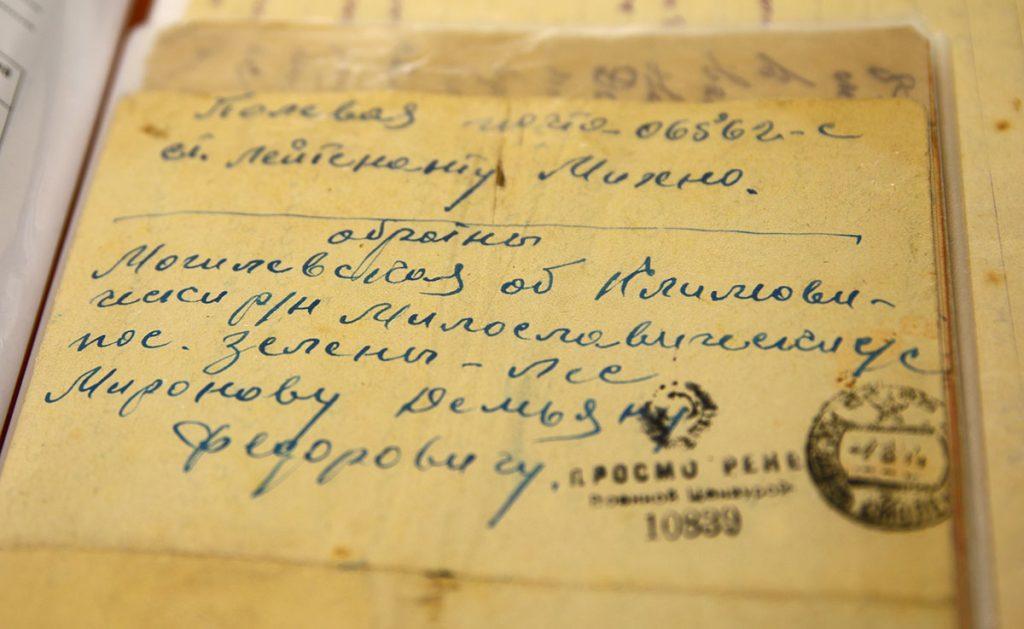 Полевая почта-06562-с
ст. лейтенанту Михно.
обратны
Могилевская об Климови-
чски р/н Милославический с/с
пос. Зелены-Лес
Миронову Демьяну
Федоровичу.
ПРОСМОТРЕНО
Военной Цензурой
10839